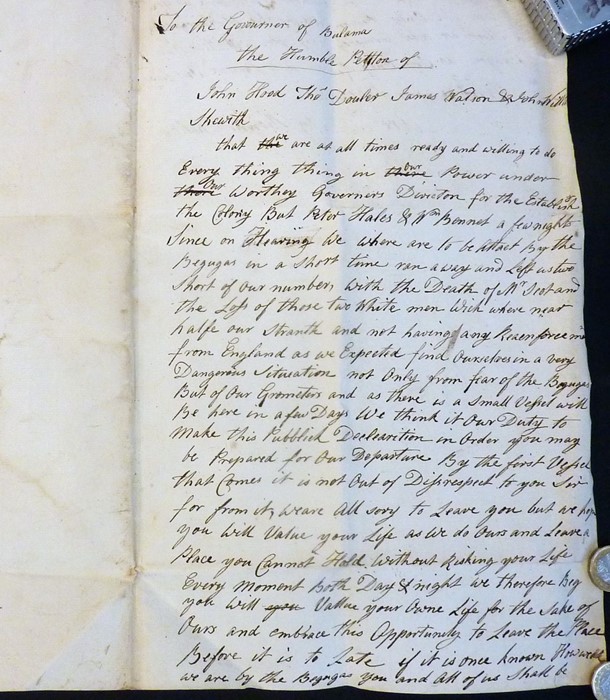 To the Governer of Bulama
the Humble Pettion of
John Hood Thos Douler James Watson & John
Shewith
that we are at all times ready and willing to do
Every thing thing in our Power under
Our Worthey Governers Diricton for the
the Colony But Peter Hales & Wm Bennet a few nights
Since on Hearing We where are to be attact By the
Begugas in a Short time ran away and Left us two
Short of Our numbers with the Death of Mr Scot and
the Loss of those two White men Wich where near
halfe our Stranth and not having any
from England as we Expected find Ourselves in a very
Dangerous Situation not Only from fear of the
But of Our and as there is a Small Vessel will
Be here in a few Days We think it Our Duty to
Make this Publick in Order you may
be Prepared for Our Departure By the first Vessel
that Comes it is not Out of Disrespect to you Sir
for from it, we are All sory to Leave you but we hope
you Will Value your Life as We do Ours and Leave a
Place you Cannot Hold Without Risking your Life
Every Moment Both Day & night we therefore Beg
you Will you Vallue your Owne Life for the Sake of
Ours and embrace this Opportunity to Leave the Place
Before it is to Late if it is once known How weak
we are by the Begugas you and All of us Shall be